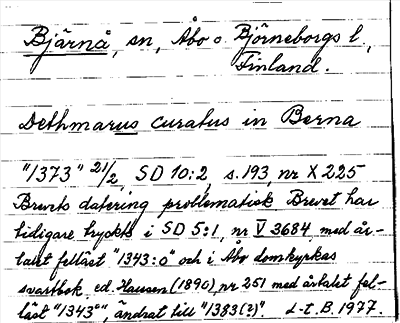 Bjärnå, sn, Åbo o. Björneborgs l.,
Finland.
Dethmarus curatus in Berna
"1373" 21/2, SD 10:2, s. 193, nr X 225
Brevets datering problematisk. Brevet har
tidigare tryckts i SD 5:1, nr V 3684 med år-
talet felläst "1343:o" och i Åbo domkyrkas
svartbok ed. Hausen (1890), nr 251 med årtalet fel-
läst "1343°", ändrat till "1383(?)". L-t. B. 1977.